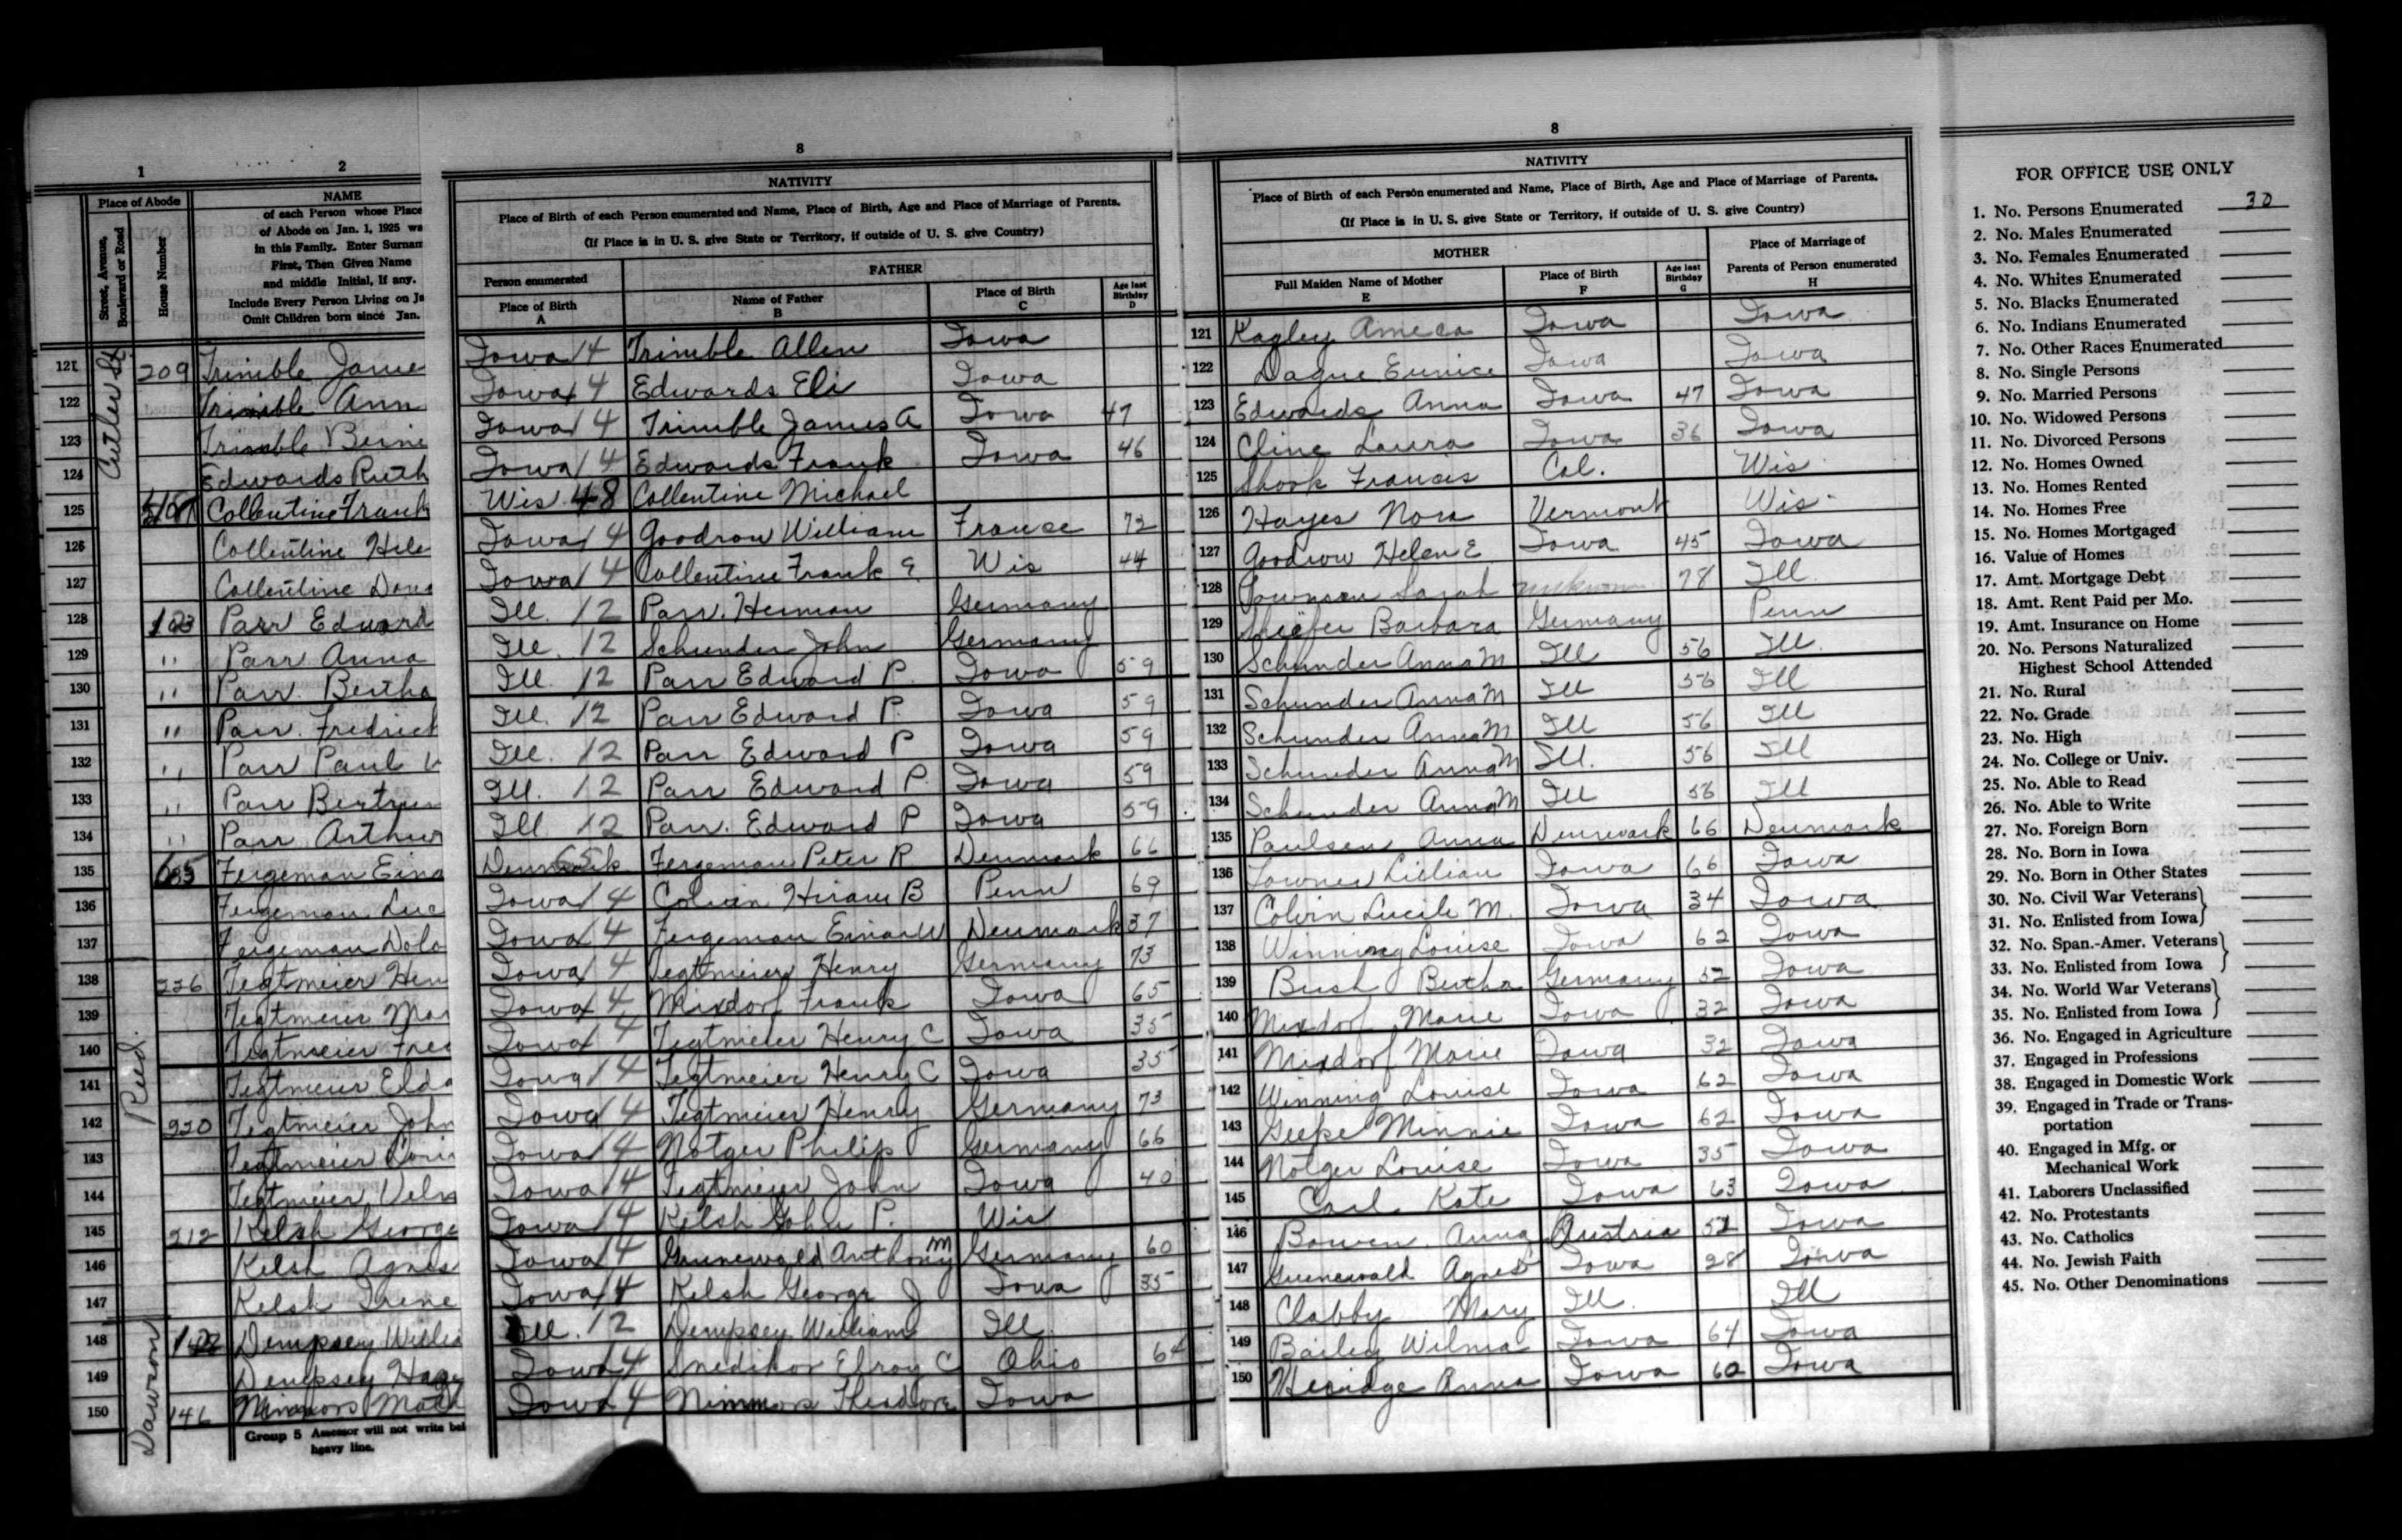 8
8
1
2
NATIVITY
NATIVITY
FOR OFFICE USE ONLY
Place of Abode
Street, Avenue, Boulevard or Road
House Number
NAME
of each Person whose Place
of Abode on Jan. 1, 1925 wa
in this Family. Enter Surnam
First, Then Given Name
and middle Initial, If any.
Include Every Person Living on Ja
Omit Children born since Jan.
Place of Birth of each Person enumerated and Name, Place of Birth, Age and Place of Marriage of Parents.
(If Place is in U. S. give State or Territory, if outside of U. S. give Country)
Person enumerated
Place of Birth
A
FATHER
Name of Father
B
Place of Birth
C
Age last Birthday
D
Cutler St
121 209 Trimble Jame Iowa 14 Trimble Allen Iowa
122 Trimble Ann Iowa 14 Edwards Eli Iowa
123 Trimble Berni Iowa 14 Trimble James A Iowa 47
124 Edwards Ruth Iowa 14 Edwards Frank Iowa 46
125 Collentine Frank Wis 48 Collentine Michael
126 Collentine Hele Iowa 14 Goodrow William France 72
127 Collentine Iowa 14 Collentine Frank E. Wis 44
128 123 Parr Edward Ill. 12 Parr. Herman Germany
129 " Parr Anna Ill. 12 Schunder John Germany
130 " Parr. Bertha Ill. 12 Parr Edward P. Iowa 59
131 " Parr. Fredrick Ill. 12 Parr Edward P. Iowa 59
132 " Parr Paul Ill. 12 Parr Edward P Iowa 59
133 " Parr Ill. 12 Parr Edward P. Iowa 59
134 " Parr Arthur Ill 12 Parr. Edward P Iowa 59
135 Fergeman Eina Denmark 65 Fergeman Peter R Denmark 66
136 Fergeman Luc Iowa 14 Colvin Hiram B Penn 69
137 Fergeman Dolo Iowa 14 Fergeman Einar W Denmark 37
Reed.
138 226 Tegtmeier Hen Iowa 14 Tegtmeier Henry Germany 73
139 Tegtmeier Mar Iowa 14 Mixdorf Frank Iowa 65
140 Tegtmeier Fred Iowa 14 Tegtmeier Henry C Iowa 35
141 Tegtmeier Elda Iowa 14 Tegtmeier Henry C Iowa 35
142 220 Tegtmeier John Iowa 14 Tegtmeier Henry Germany 73
143 Tegtmeier Loui Iowa 14 Notger Philip Germany 66
144 Tegtmeier Velm Iowa 14 Tegtmeier John Iowa 40
145 212 Kelsh George Iowa 14 Kelsh John P. Wis
146 Kelsh Agnes Iowa 14 Grunewald Anthony M Germany 60
147 Kelsh Irene Iowa 14 Kelsh George J Iowa 35
Dawson
148 Dempsey Willia Ill. 12 Dempsey William Ill
149 Dempsey Haze Iowa 14 Snediker Elroy C Ohio 64
150 146 Nimmors Iowa 14 Nimmors Theodore Iowa
Group 5 Assessor will not write bel
heavy line.
Place of Birth of each Person enumerated and Name, Place of Birth, Age and Place of Marriage of Parents.
(If Place is in U. S. give State or Territory, if outside of U. S. give Country)
MOTHER
Full Maiden Name of Mother
E
Place of Birth
F
Age last Birthday
G
Place of Marriage of
Parents of Person enumerated
H
121 Kagley Iowa Iowa
122 Dague Eunice Iowa Iowa
123 Edwards Anna Iowa 47 Iowa
124 Cline Laura Iowa 36 Iowa
125 Shook Frances Cal. Wis
126 Hayes Nora Vermont Wis.
127 Goodrow Helen E Iowa 45 Iowa
128 Sarah unknown 78 Ill
129 Barbara Germany Penn
130 Schunder Anna M Ill 56 Ill.
131 Schunder Anna M Ill 56 Ill
132 Schunder Anna M Ill 56 Ill
133 Schunder Anna M Ill. 56 Ill
134 Schunder Anna M Ill 56 Ill
135 Paulsen Anna Denmark 66 Denmark
136 Lillian Iowa 66 Iowa
137 Colvin Lucile M. Iowa 34 Iowa
138 Winning Louise Iowa 62 Iowa
139 Bush Bertha Germany 52 Iowa
140 Mixdorf Marie Iowa 32 Iowa
141 Mixdorf Marie Iowa 32 Iowa
142 Winning Louise Iowa 62 Iowa
143 Minnie Iowa 62 Iowa
144 Notger Louise Iowa 35 Iowa
145 Carl Kate Iowa 63 Iowa
146 Bowen Anna Austria 52 Iowa
147 Grunewald Agnes Iowa 28 Iowa
148 Clabby Mary Ill. Ill
149 Bailey Wilma Iowa 64 Iowa
150 Anna Iowa 60 Iowa
1. No. Persons Enumerated 30
2. No. Males Enumerated
3. No. Females Enumerated
4. No. Whites Enumerated
5. No. Blacks Enumerated
6. No. Indians Enumerated
7. No. Other Races Enumerated
8. No. Single Persons
9. No. Married Persons
10. No. Widowed Persons
11. No. Divorced Persons
12. No. Homes Owned
13. No. Homes Rented
14. No. Homes Free
15. No. Homes Mortgaged
16. Value of Homes
17. Amt. Mortgage Debt
18. Amt. Rent Paid per Mo.
19. Amt. Insurance on Home
20. No. Persons Naturalized
Highest School Attended
21. No. Rural
22. No. Grade
23. No. High
24. No. College or Univ.
25. No. Able to Read
26. No. Able to Write
27. No. Foreign Born
28. No. Born in Iowa
29. No. Born in Other States
30. No. Civil War Veterans
31. No. Enlisted from Iowa
32. No. Span.-Amer. Veterans
33. No. Enlisted from Iowa
34. No. World War Veterans
35. No. Enlisted from Iowa
36. No. Engaged in Agriculture
37. Engaged in Professions
38. Engaged in Domestic Work
39. Engaged in Trade or Trans-
portation
40. Engaged in Mfg. or
Mechanical Work
41. Laborers Unclassified
42. No. Protestants
43. No. Catholics
44. No. Jewish Faith
45. No. Other Denominations